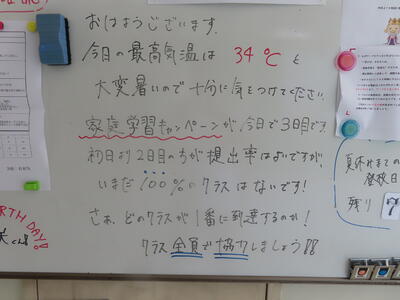 おはようございます。
今日の最高気温は 34℃と
大変暑いので十分に気をつけてください。
家庭学習キャンペーンが今日で3日目です
初日より2日目の方が提出率はよいですが、
いまだ100%のクラスはないです!
さぁ、どのクラスが1番に到達するのか!
クラス全員で協力しましょう!!
夏休みまでの
登校日
残り 7
RTH DAY!